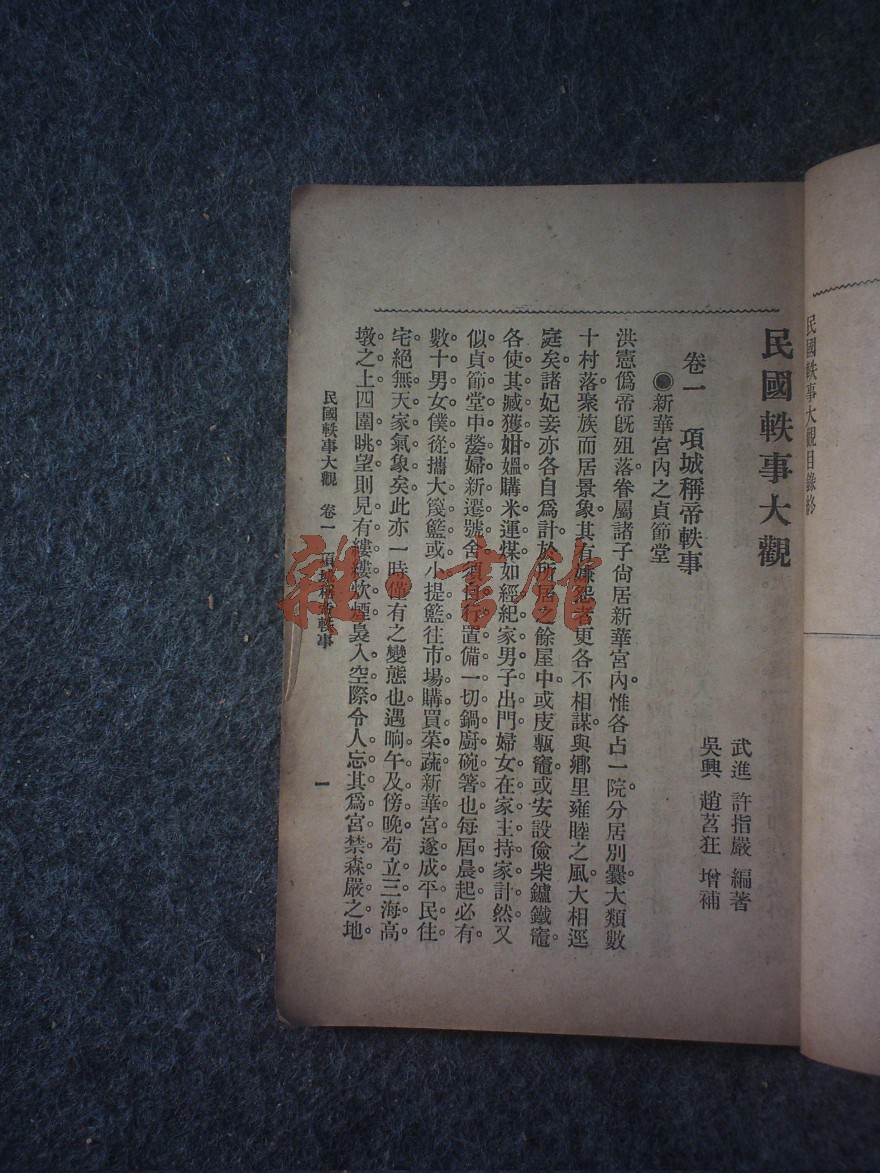 民國軼事大觀目錄終
民國軼事大觀
武進 許指嚴 編著
吳興 趙苕狂 增補
卷一 項城稱帝軼事
●新華宮內之貞節堂
洪憲僞帝旣殂落眷屬諸子尙居新華宮內。惟各占一院分居別爨大類數
十村落聚族而居景象。其有嫌怨者更各不相謀。與鄕里雍睦之風大相逕
庭矣。諸妃妾亦各自爲計。於所居之餘屋中。或庋甎竈。或安設儉柴鑪鐵竈。
各使其臧獲姐媼購米運煤。如經紀家男子出門。婦女在家主持家計然。又
似貞節堂中嫠婦新遷號舍須自行置備一切鍋廚碗箸也。每屆晨起必有
數十男女僕從攜大篾籃或小提籃往市場購買菜蔬。新華宮遂成平民住
宅。絕無天家氣象矣。此亦一時僅有之變態也。遇晌午及傍晚苟立三海高
墩之上四圍眺望則見有縷縷炊煙裊入空際。令人忘其爲宮禁森嚴之地。
民國軼事大觀 卷一 項城稱帝軼事 一
雜·書館